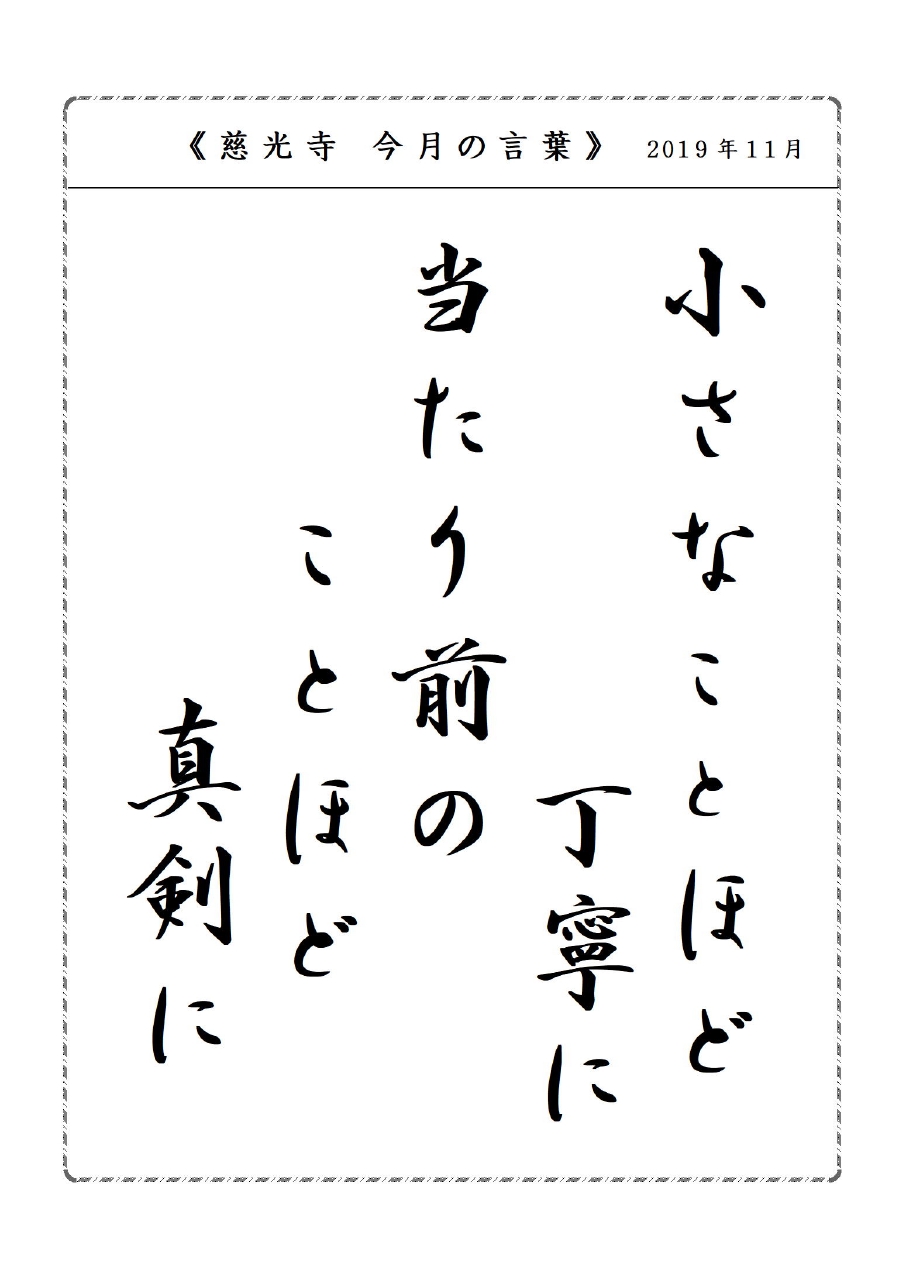 《慈光寺 今月の言葉》 2019年11月
小さなことほど
丁寧に
当たり前の
ことほど
真剣に